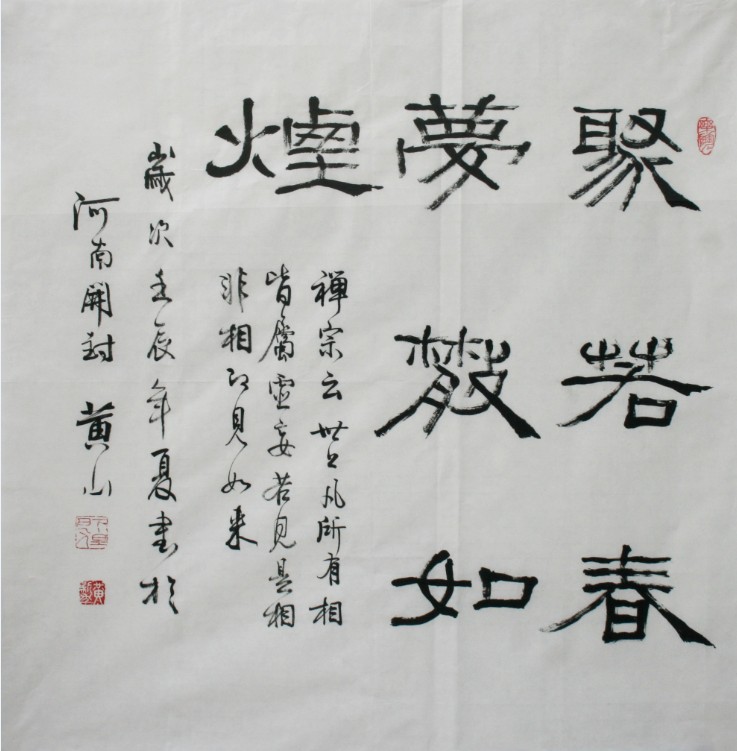 聚若春
夢散如
煙
禪宗云世上凡所有相
皆屬虛妄若見是相
非相即見如来
歲次壬辰年夏書於
河南開封 黄山